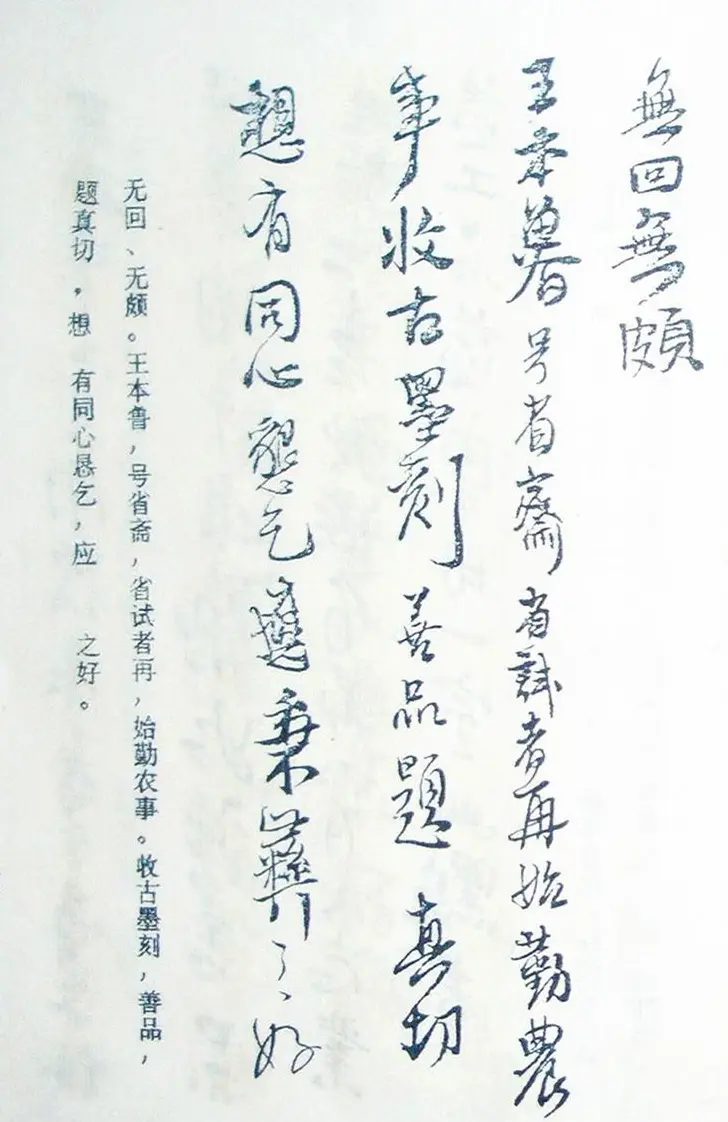 無回無頗
王本魯号省齋省試者再始勤農
事收古墨刻善品題真切
想有同心懇乞應秉彝之好
无回、无颇。王本鲁，号省斋，省试者再，始勤农事。收古墨刻，善品，
题真切，想 有同心恳乞，应 之好。